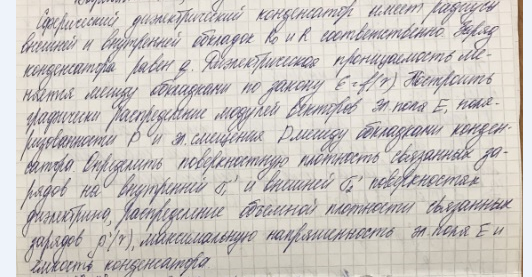 Сферический диэлектрический конденсатор имеет радиусы
внешней и внутренней обкладок R₀ и R соответственно. Заряд
конденсатора равен q. Диэлектрическая проницаемость ме-
няется между обкладками по закону ε = f(r) Построить
графически распределение модулей векторов эл. поля E, поля-
ризованности P и эл. смещения D между обкладками конден-
сатора Определить поверхностную плотность связанных за-
рядов на внутренней σ₁' и внешней σ₂' поверхностях
диэлектрика, распределение объемной плотности связанных
зарядов ρ'(r), максимальную напряженность эл. поля E и
ёмкость конденсатора